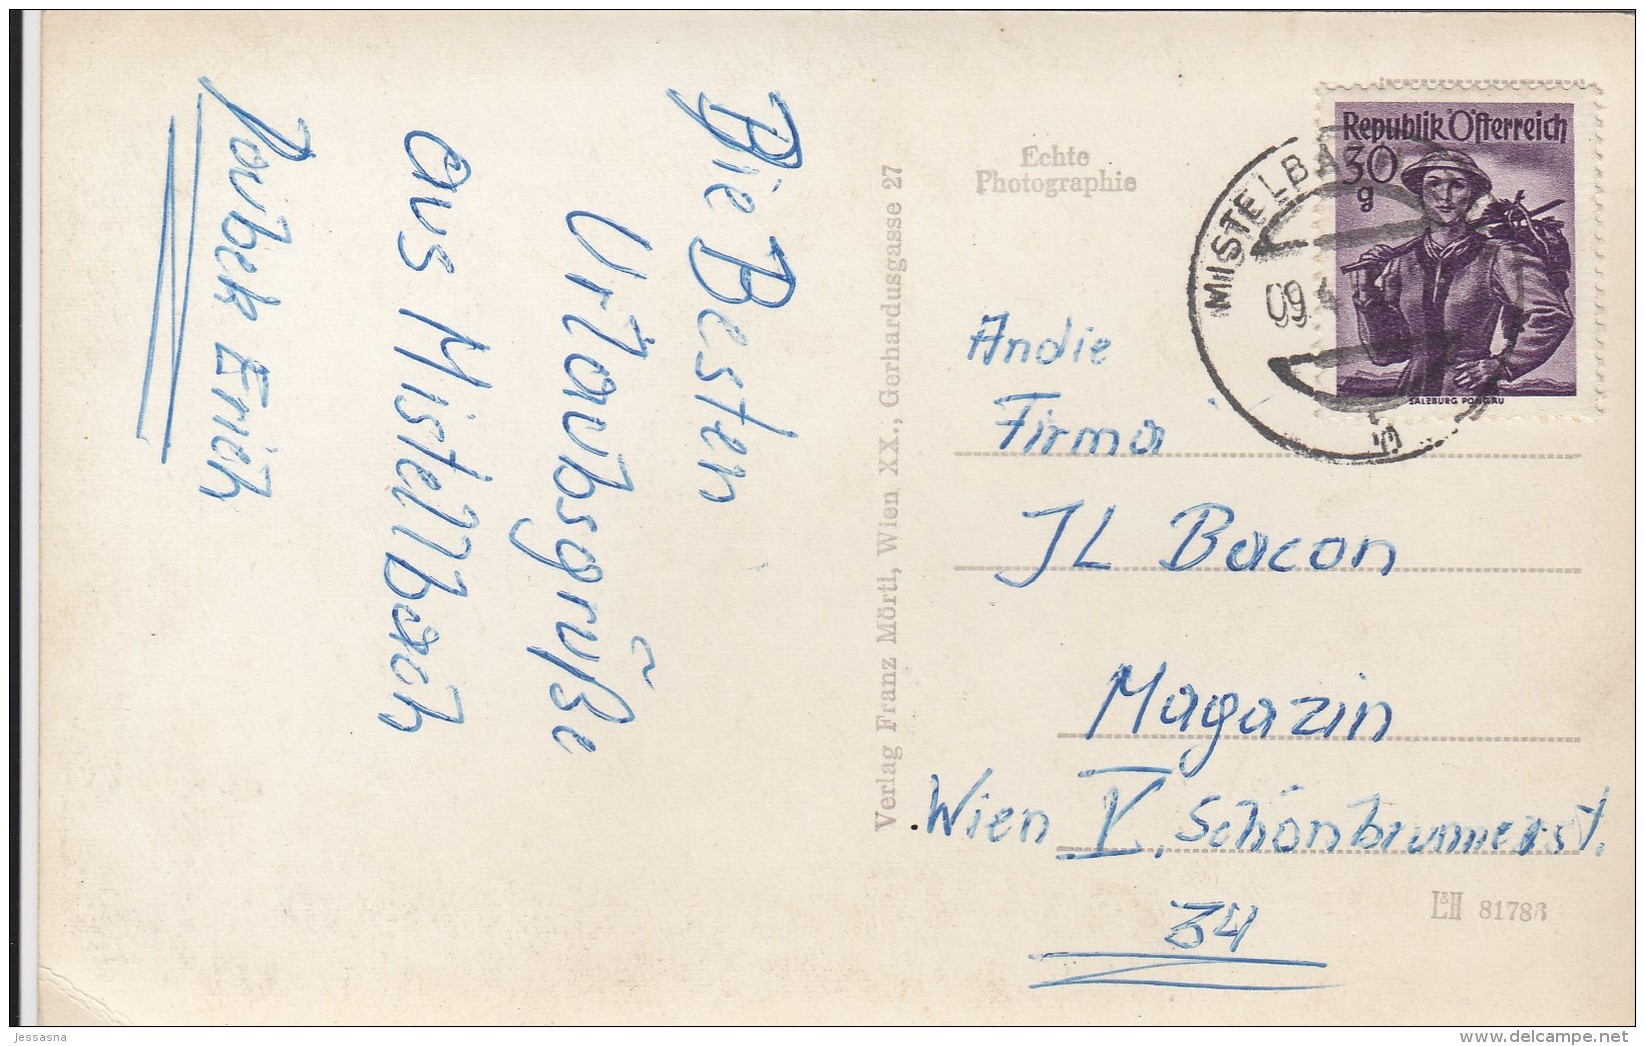 Die Besten
Urlaubsgrüße
aus Mistellbach
Erich
Verlag Franz Mörtl, Wien XX., Gerhardusgasse 27
Echte
Photographie
MISTELBA
09.4
Republik Österreich
30
g
SALZBURG PONGAU
Andie
Firma
JL Bacon
Magazin
Wien V, Schönbrunnerst.
34
L&H 81786
jessasna